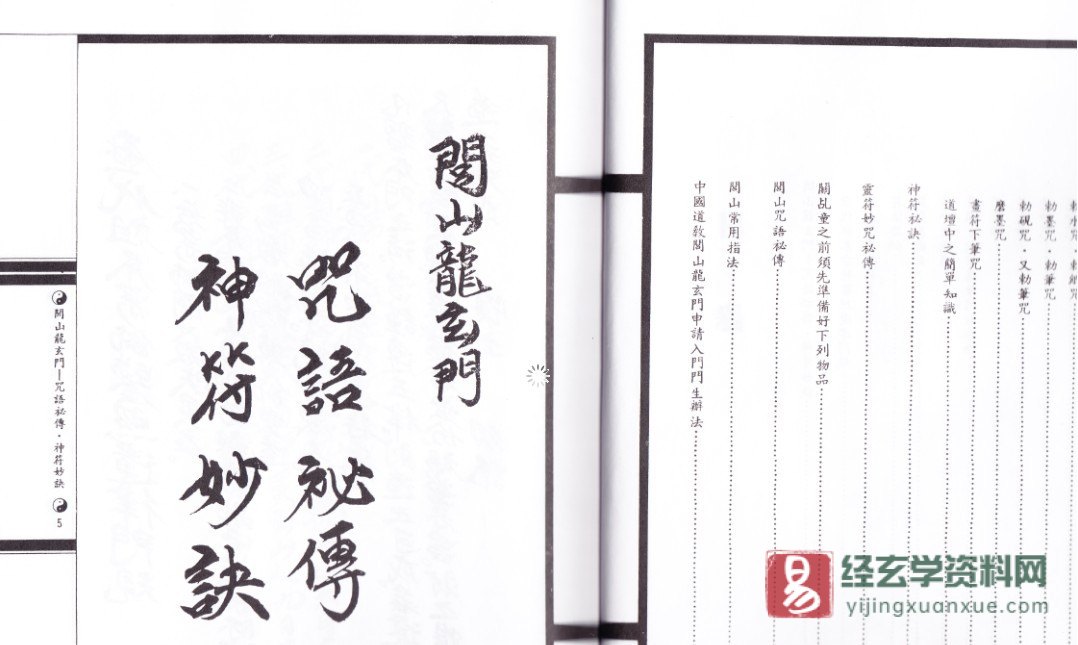 勅墨咒・勅筆咒
勅硯咒・又勅筆咒
磨墨咒
畫符下筆咒
道壇中之簡單知識
神符秘訣
靈符妙咒秘傳
關乩童之前須先準備好下列物品
閭山咒語秘傳
閭山常用指法
中國道教閭山龍玄門申請入門門生辦法
閭山龍玄門
咒語祕傳
神符妙訣
閭山龍玄門—咒語祕傳・神符妙訣
5
易
经玄学资料网
yijingxuanxue.com